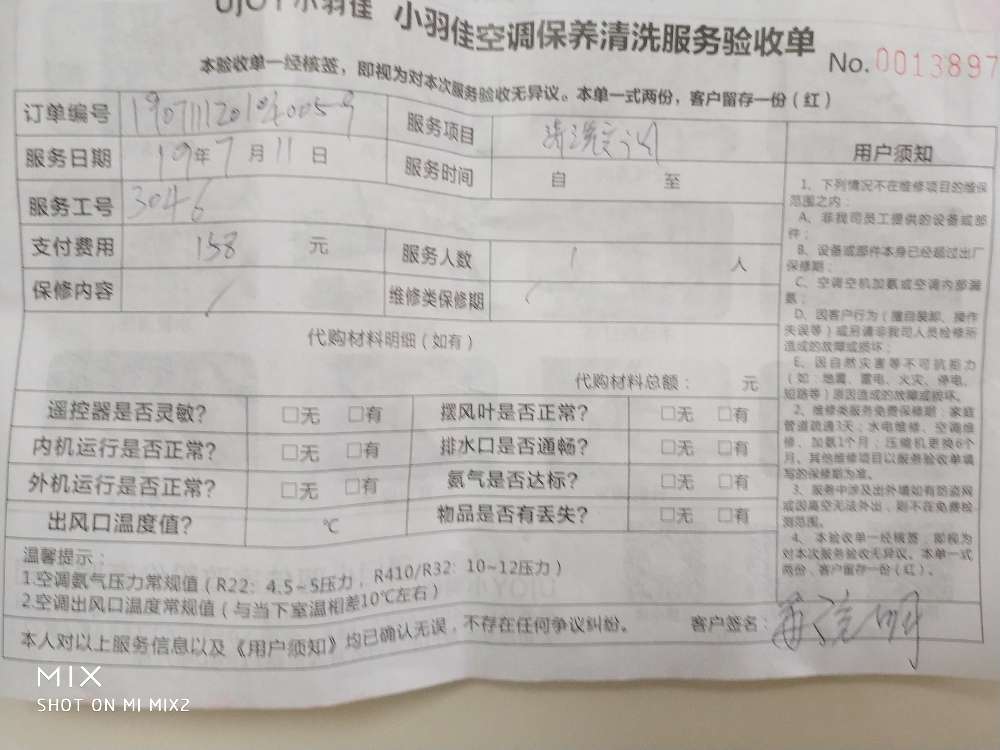 UJOY小羽佳 小羽佳空调保养清洗服务验收单
No. 0013897
本验收单一经核签，即视为对本次服务验收无异议。本单一式两份，客户留存一份（红）
订单编号 服务项目
服务日期 19年7月11日 服务时间 自 至
服务工号 3046
支付费用 158 元 服务人数 1 人
保修内容 / 维修类保修期 /
代购材料明细（如有）
代购材料总额： 元
遥控器是否灵敏？ □无 □有 摆风叶是否正常？ □无 □有
内机运行是否正常？ □无 □有 排水口是否通畅？ □无 □有
外机运行是否正常？ □无 □有 氨气是否达标？ □无 □有
出风口温度值？ ℃ 物品是否有丢失？ □无 □有
温馨提示：
1.空调氨气压力常规值（R22：4.5~5压力，R410/R32：10~12压力）
2.空调出风口温度常规值（与当下室温相差10℃左右）
本人对以上服务信息以及《用户须知》均已确认无误，不存在任何争议纠纷。 客户签名：
用户须知
1、下列情况不在维修项目的维保
范围之内：
A、非我司员工提供的设备或部
件；
B、设备或部件本身已经超过出厂
保修期；
C、空调空机加氨或空调内部漏
氨；
D、因客户行为（擅自装卸、操作
失误等）或另请非我司人员检修所
造成的故障或损坏；
E、因自然灾害等不可抗拒力
（如：地震、雷电、火灾、停电、
短路等）原因造成的故障或损坏。
2、维修类服务免费保修期：家庭
管道疏通3天；水电维修、空调维
修、加氨1个月；压缩机更换6个
月、其他维修项目以服务验收单填
写的保修期为准。
3、服务中涉及出外墙如有防盗网
或因高空无法外出，则不在免费检
测范围。
4、本验收单一经核签，即视为
对本次服务验收无异议。本单一式
两份，客户留存一份（红）。
MIX
SHOT ON MI MIX2